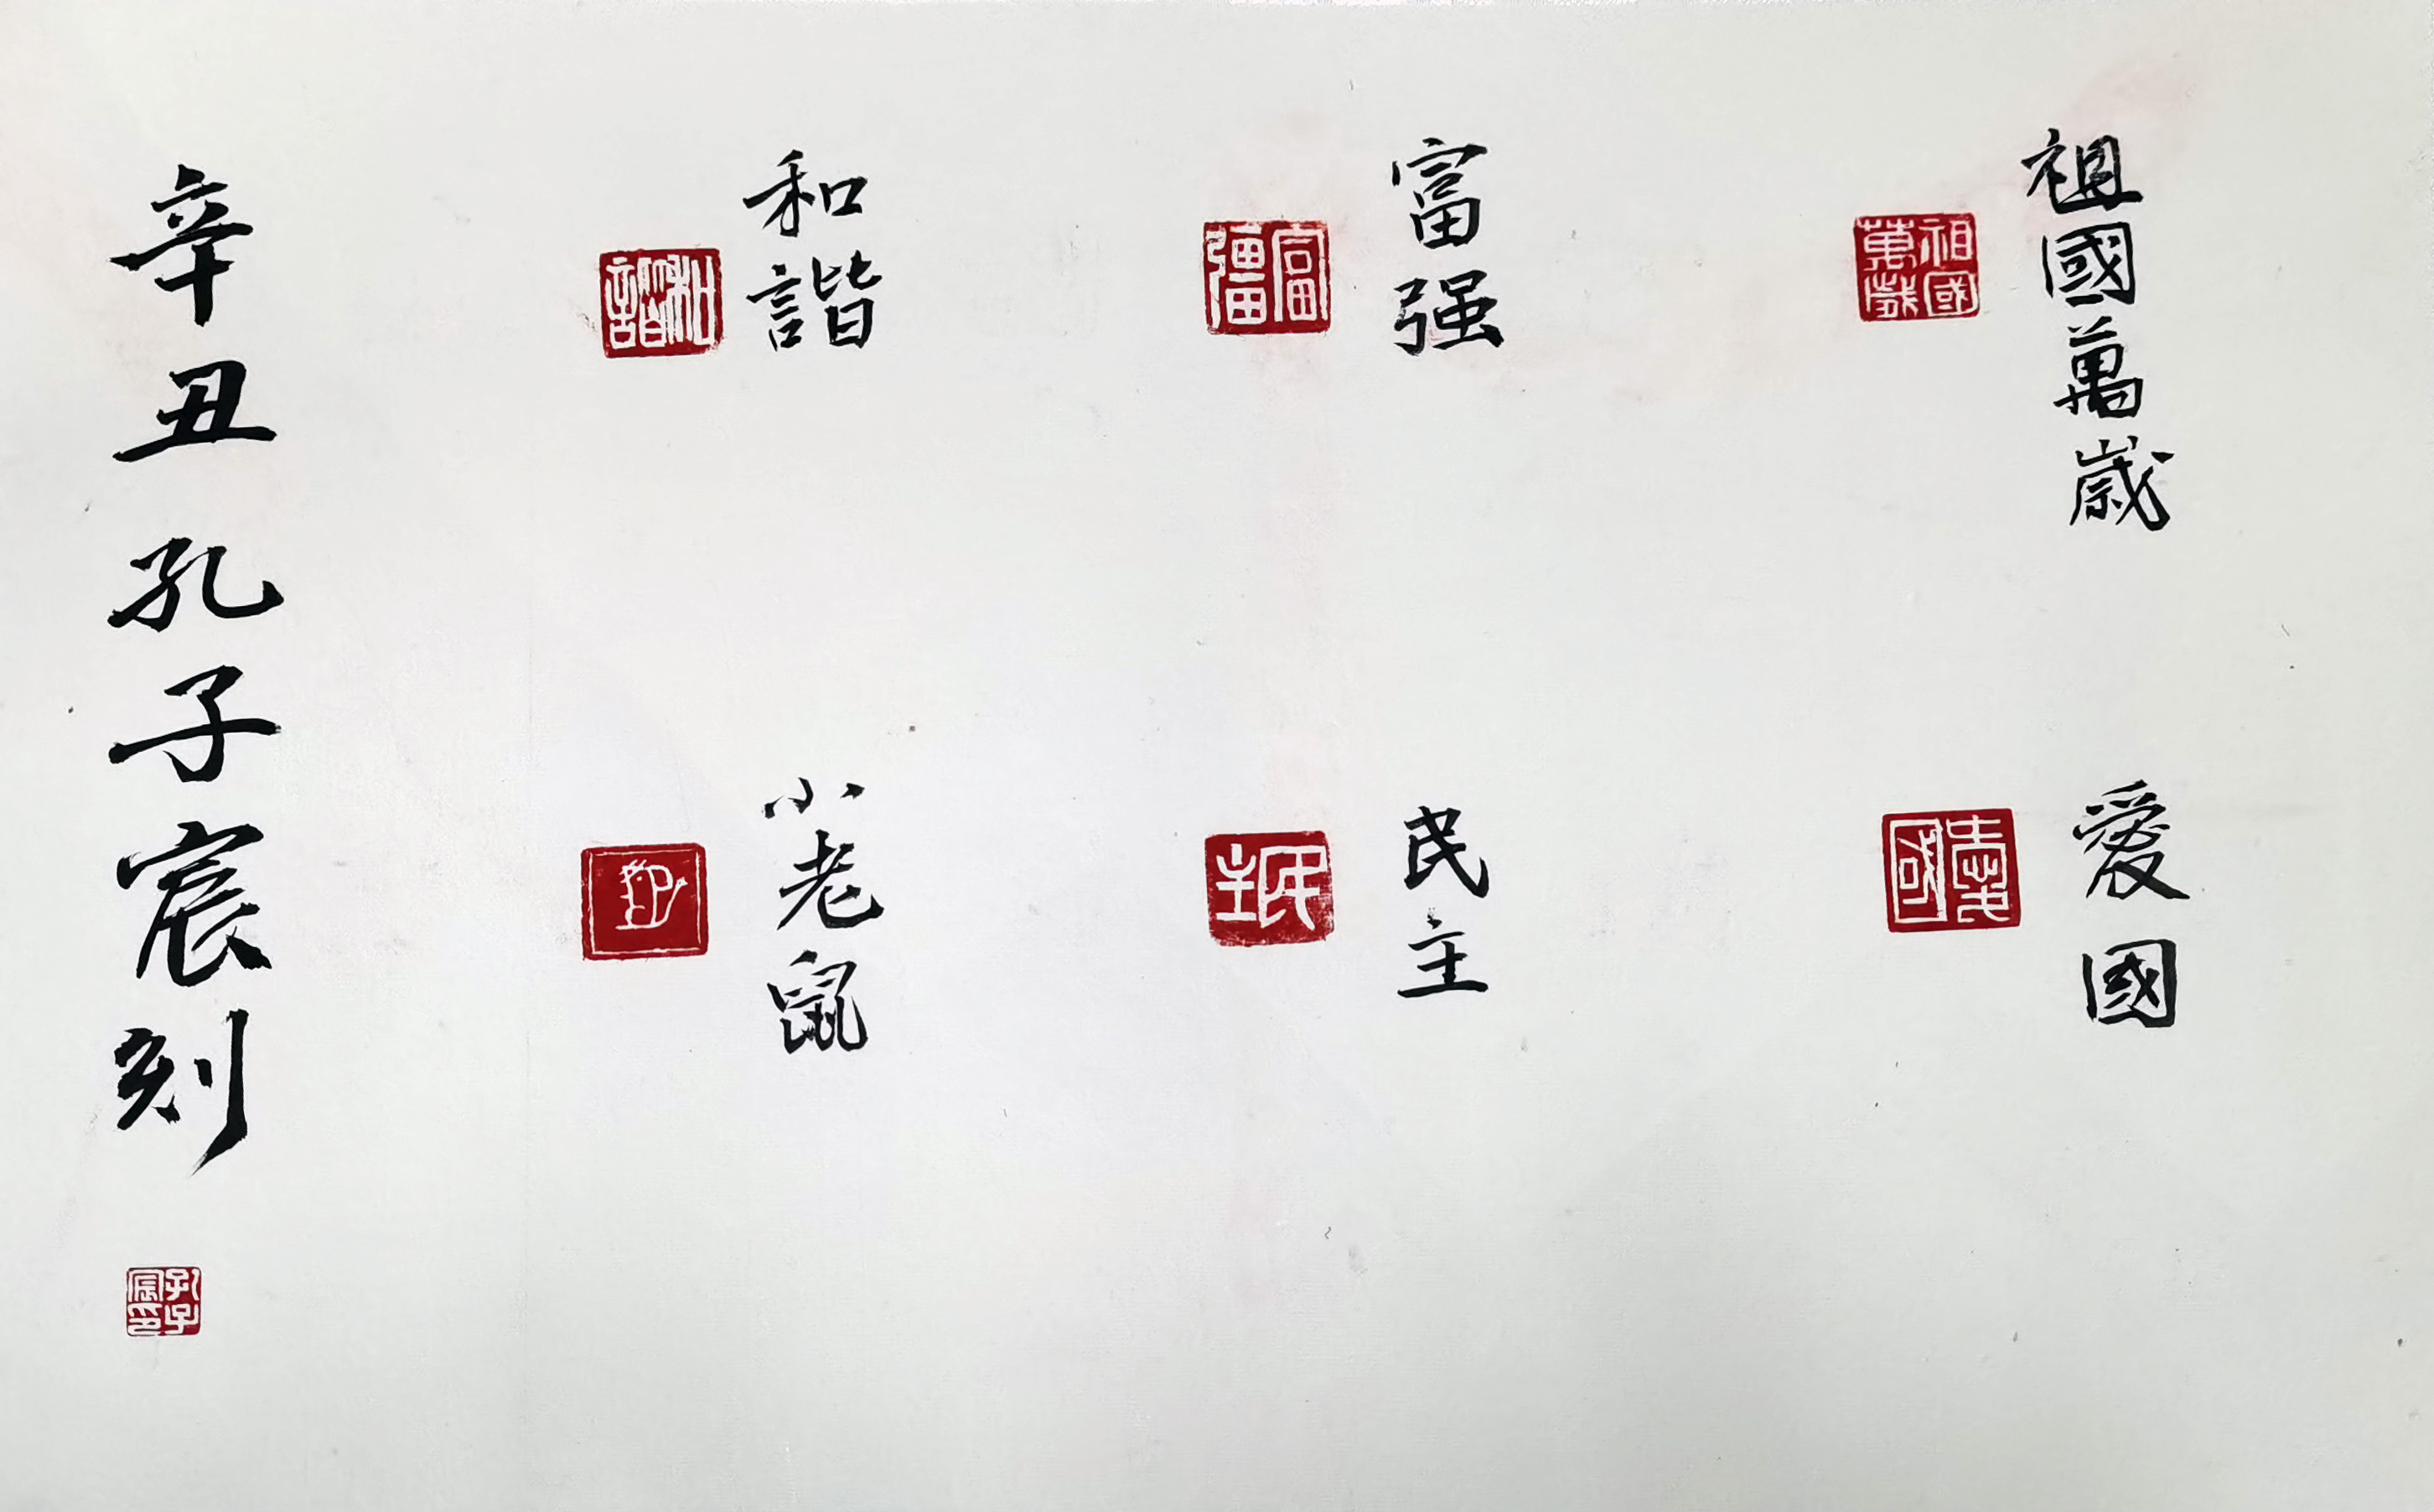 祖國萬歲
祖國萬歲
愛國
愛國
富强
富彊
民主
民主
和諧
和諧
小老鼠
辛丑孔子宸刻
孔子宸印